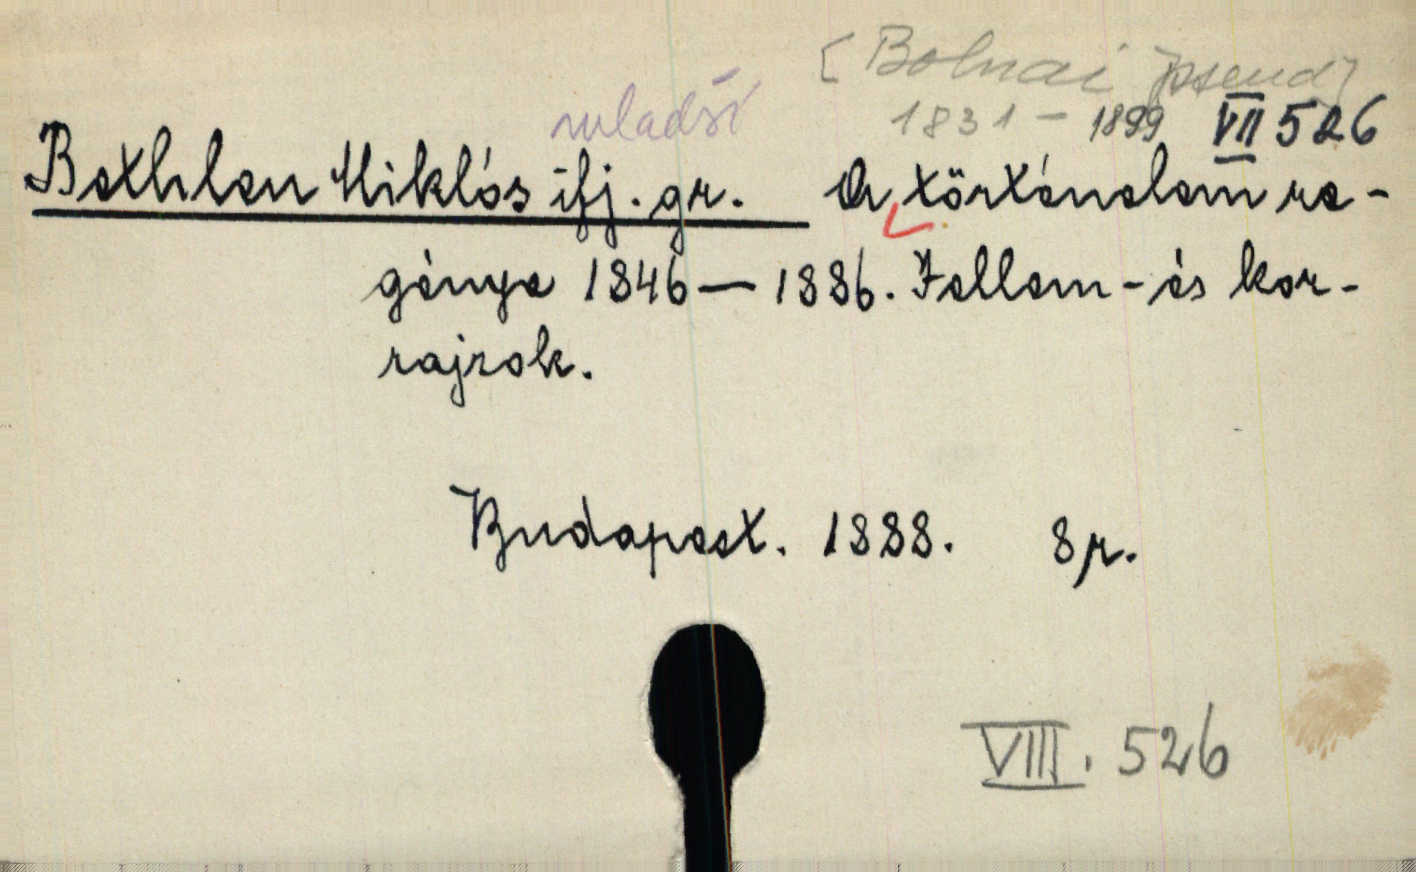 [Bolnai pseud]
mladší
1831-1899 VII 526
Bethlen Miklós ifj. gr. A történelem re-
génye 1846-1886. Jellem- és kor-
rajzok.
Budapest. 1888. 8r.
VIII. 526